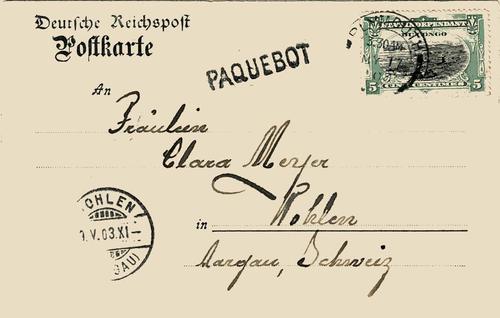 Deutsche Reichspost
Postkarte
PAQUEBOT
ÉTAT INDÉPENDANT
DU CONGO
5 5
An
Fräulein
Clara Meyer
in Wohlen
Aargau, Schweiz
OHLEN
9.V.03.XI-
GAU)